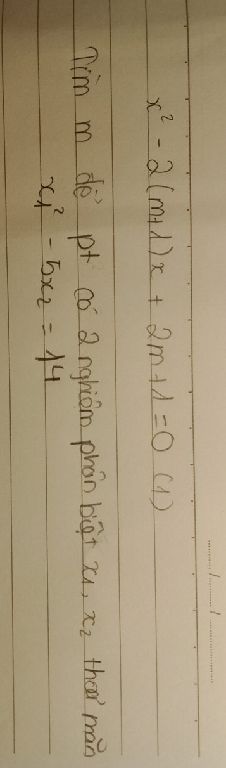 x² - 2(m+1)x + 2m+1=0 (1)
Tìm m để pt có 2 nghiệm phân biệt x₁, x₂ thoả mãn
x₁² - 5x₂ = 14